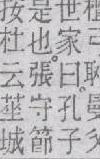 世家曰孔子
是也張守節
按杜云莖城